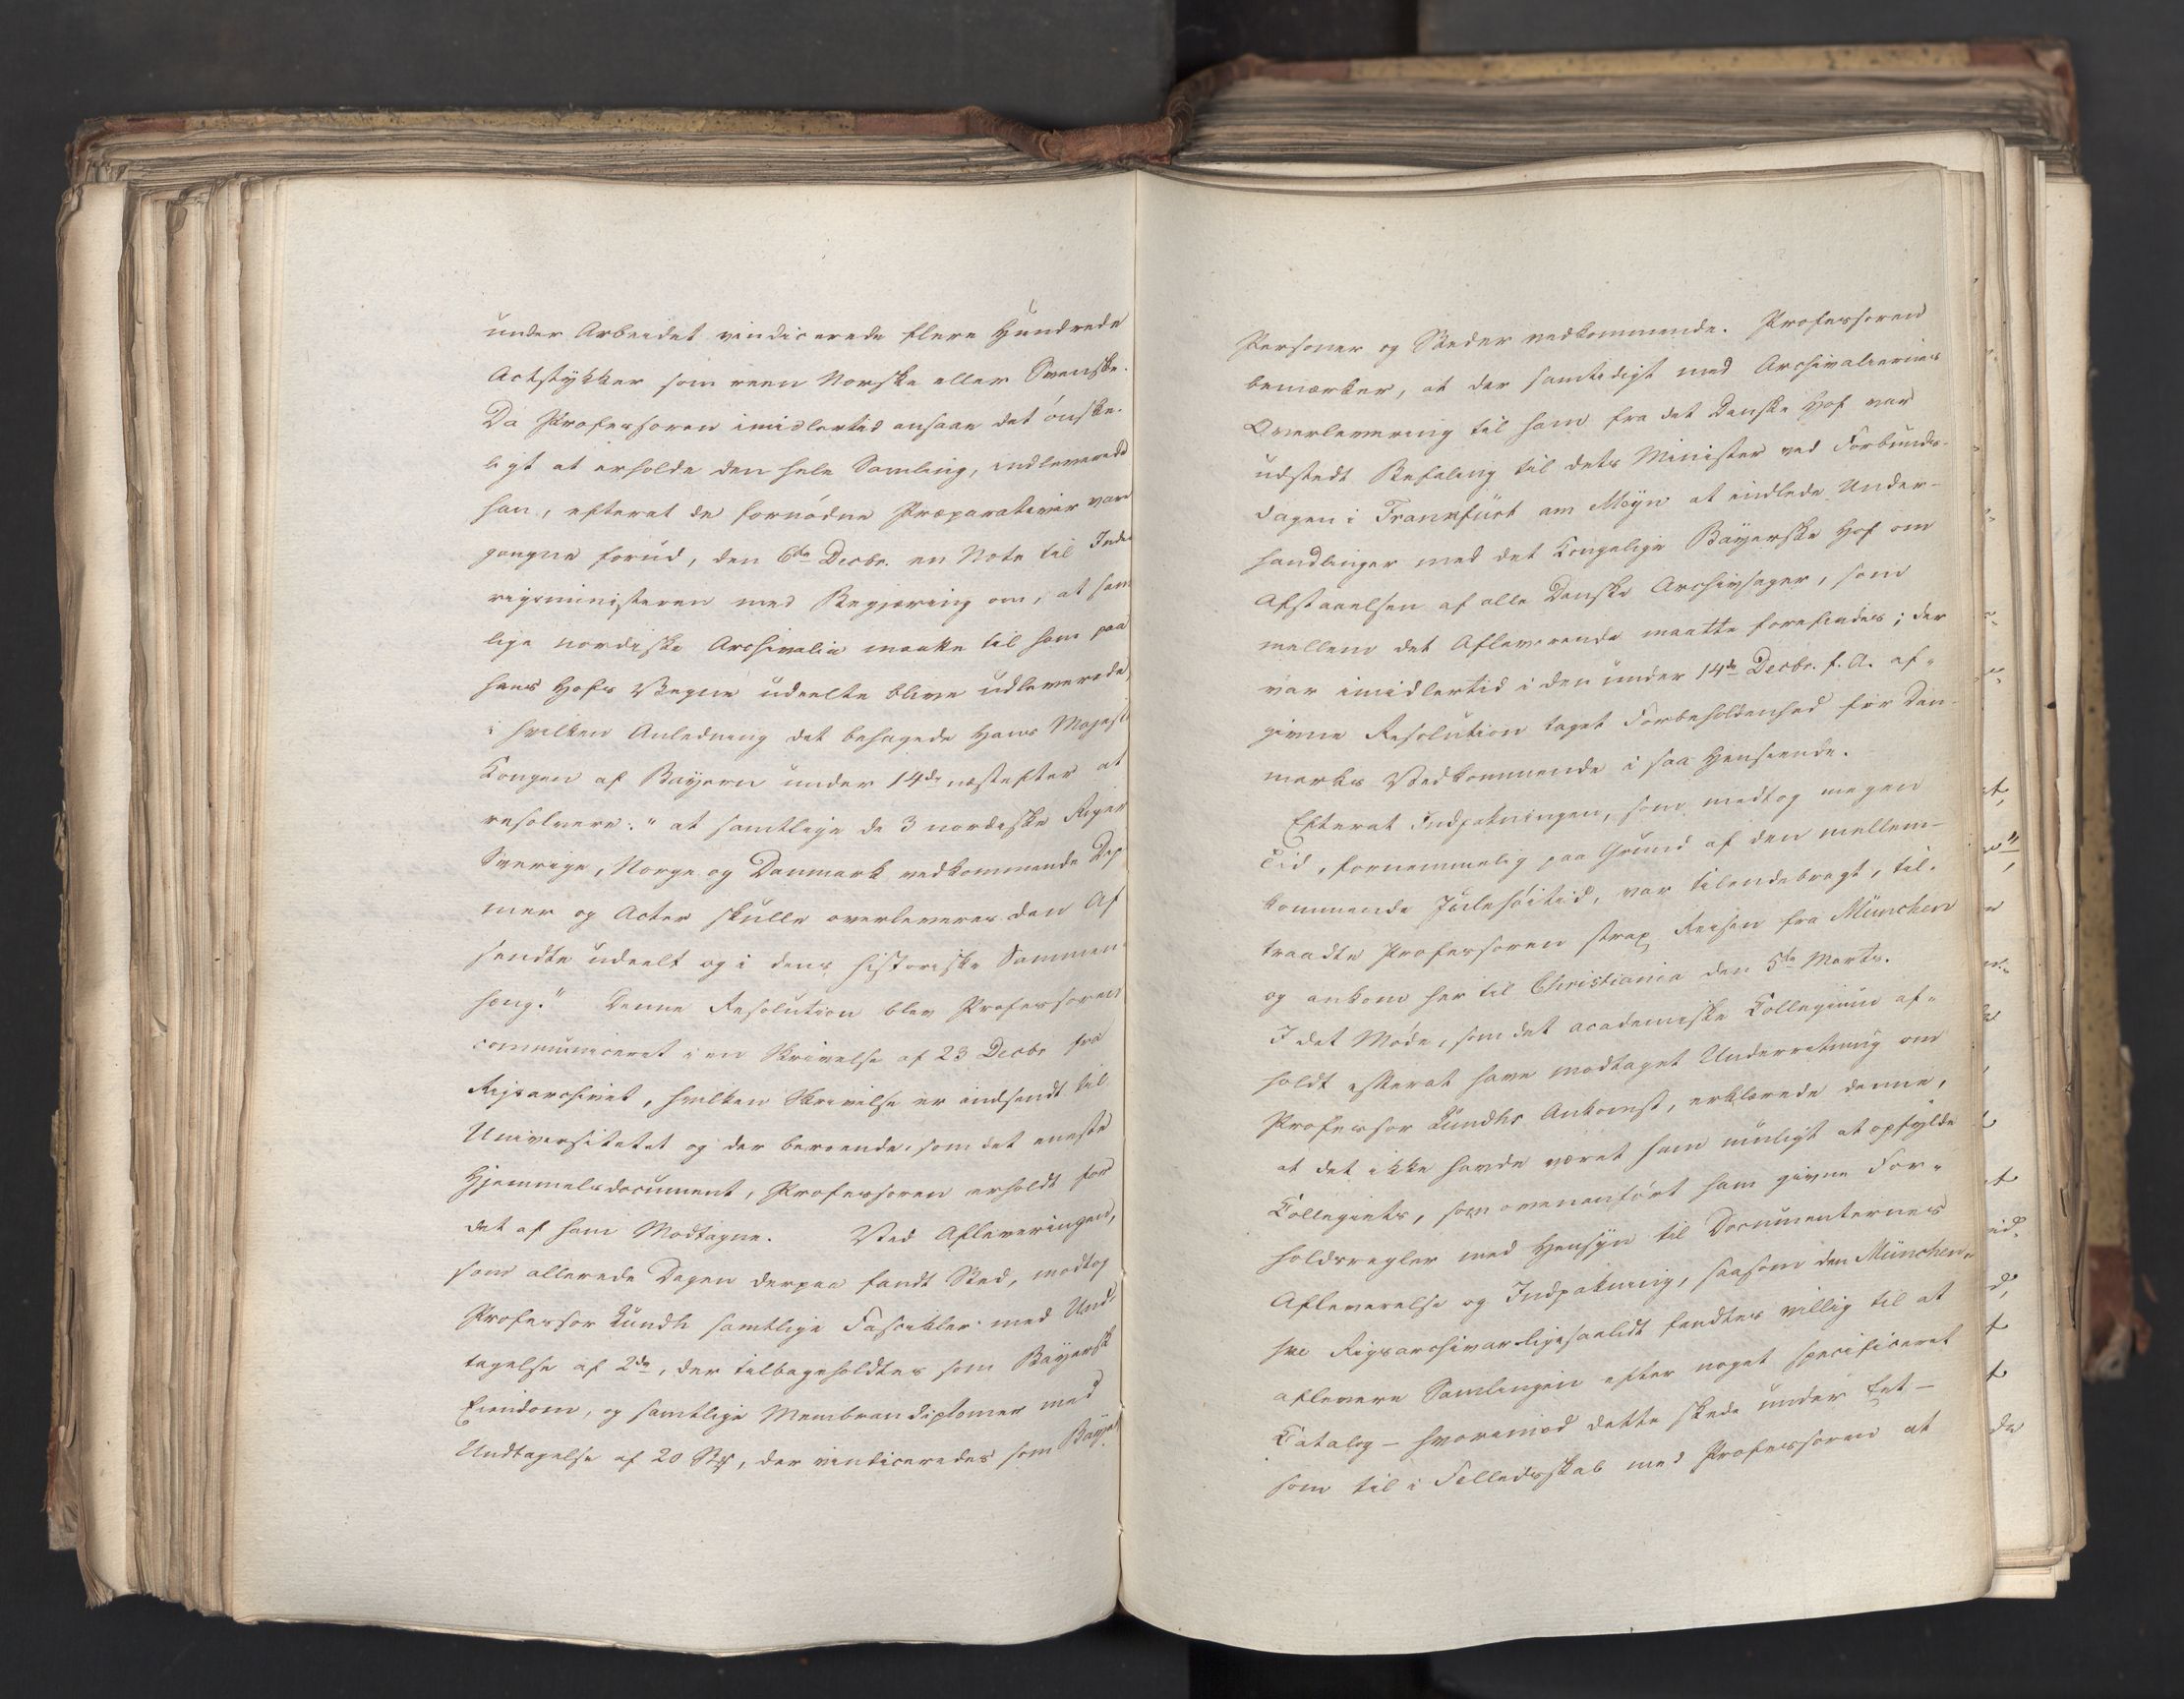 under Arbeidet vindicerede flere Hundrede
Actstykker som reen Norske eller Svenske.
Da Professoren imidlertid ansaae det ønske-
ligt at erholde den hele Samling, indleverede
han, efterat de fornødne Præparativer vare
gangne forud, den 6te Decbr. en Note til Inde
rigsministeren med Begjæring om, at sam
lige nordiske Archivalia maatte til ham paa
hans Hofs Vegne udeelte blive udleverede,
i hvilken Anledning det behagede Hans Majest.
Kongen af Bayern under 14de næstefter at
resolvere: "at samtlige de 3 nordiske Riger
Sverige, Norge og Danmark vedkommende Dip
mer og Acter skulle overleveres den Af
sendte udeelt og i dens historiske Sammen
hæng." Denne Resolution blev Professoren
communiceret i en Skrivelse af 23 Decbr fra
Rigsarchivet, hvilken Skrivelse er indsendt til
Universitetet og der beroende, som det eneste
Hjemmelsdocument, Professoren erholdt for
det af ham Modtagne. Ved Afleveringen,
som allerede Dagen derpaa fandt Sted, modtog
Professor Lundh samtlige Fascikler med Und-
tagelse af 2de, der tilbageholdtes som Bayersk
Eiendom, og samtlige Membrandiplomer med
Undtagelse af 20 Stk, der vindiceredes som Bayer
Personer og Steder vedkommende. Professoren
bemærker, at der samtidigt med Archivaliernes
Overlevering til ham fra det Danske Hof var
udstedt Befaling til dets Minister ved Forbunds-
dagen i Frankfurt am Mayn at indlede Under-
handlinger med det Kongelige Bayerske Hof om
Afstaaelsen af alle Danske Archivsager, som
mellem det Afleverende maatte forefindes; der
var imidlertid i den under 14de Decbr. f. A. af-
givne Resolution taget Forbeholdenhed for Dan-
marks Vedkommende i saa Henseende.
Efterat Indpakningen, som medtog megen
Tid, fornemmelig paa Grund af den mellem-
kommende Julehøitid, var tilendebragt, til-
traadte Professoren strax Reisen fra München
og ankom her til Christiania den 5te Marts.
I det Møde, som det academiske Collegium af-
holdt efterat have modtaget Underretning om
Professor Lundhs Ankomst, erklærede denne,
at det ikke havde været ham muligt at opfylde
Collegiets, som ovenanført ham givne For-
holdsregler med Hensyn til Documenternes
Afleverelse og Indpakning, saasom den München-
ske Rigsarchivar ligesaalidt fandtes villig til at
aflevere Samlingen efter noget specificeret
Catalog – hvorimod dette skede under Eet –
som til i Fælledsskab med Professoren at